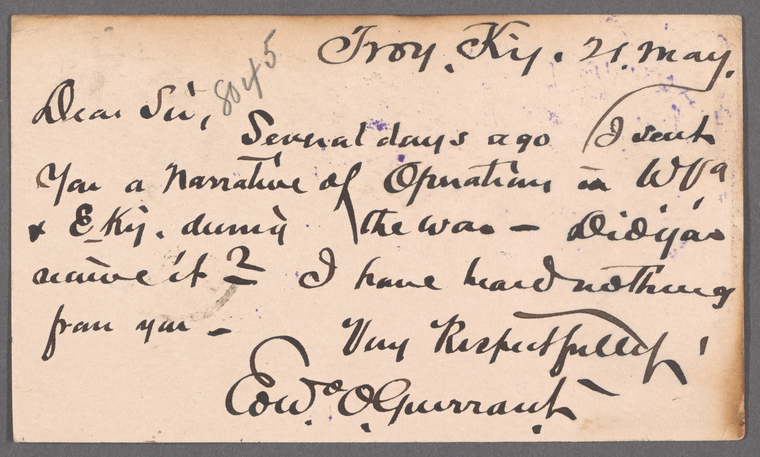 Troy, Ky. 21. May.
8045
Dear Sir,
Several days ago I sent
You a Narrative of Operations in W Va
& E. Ky. during the war – Did you
receive it? – I have heard nothing
from you –
Very Respectfully,
Edwd. O. Guerrant